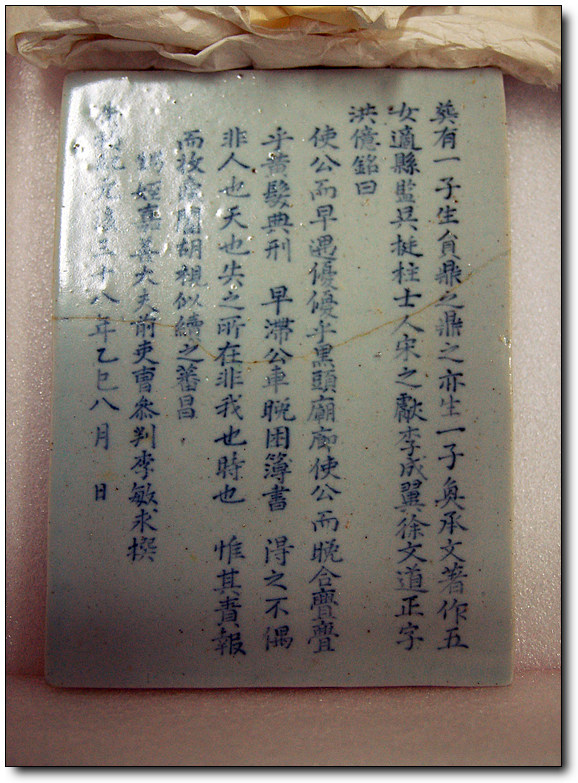 葬有一子生員鼎之鼎之亦生一子奐承文著作五
女適縣監吳挺柱士人宋之獻李成翼徐文道正字
洪億銘曰
使公而早遇優優乎黑頭廟廊使公而晩合亹亹
乎黃髮典刑 早滯公車晩困簿書 得之不偶
非人也天也失之所在非我也時也 惟其責報
而 胡視似續之蕃昌
姪嘉善大夫前吏曹參判李敏求撰
後三十八年乙巳八月 日